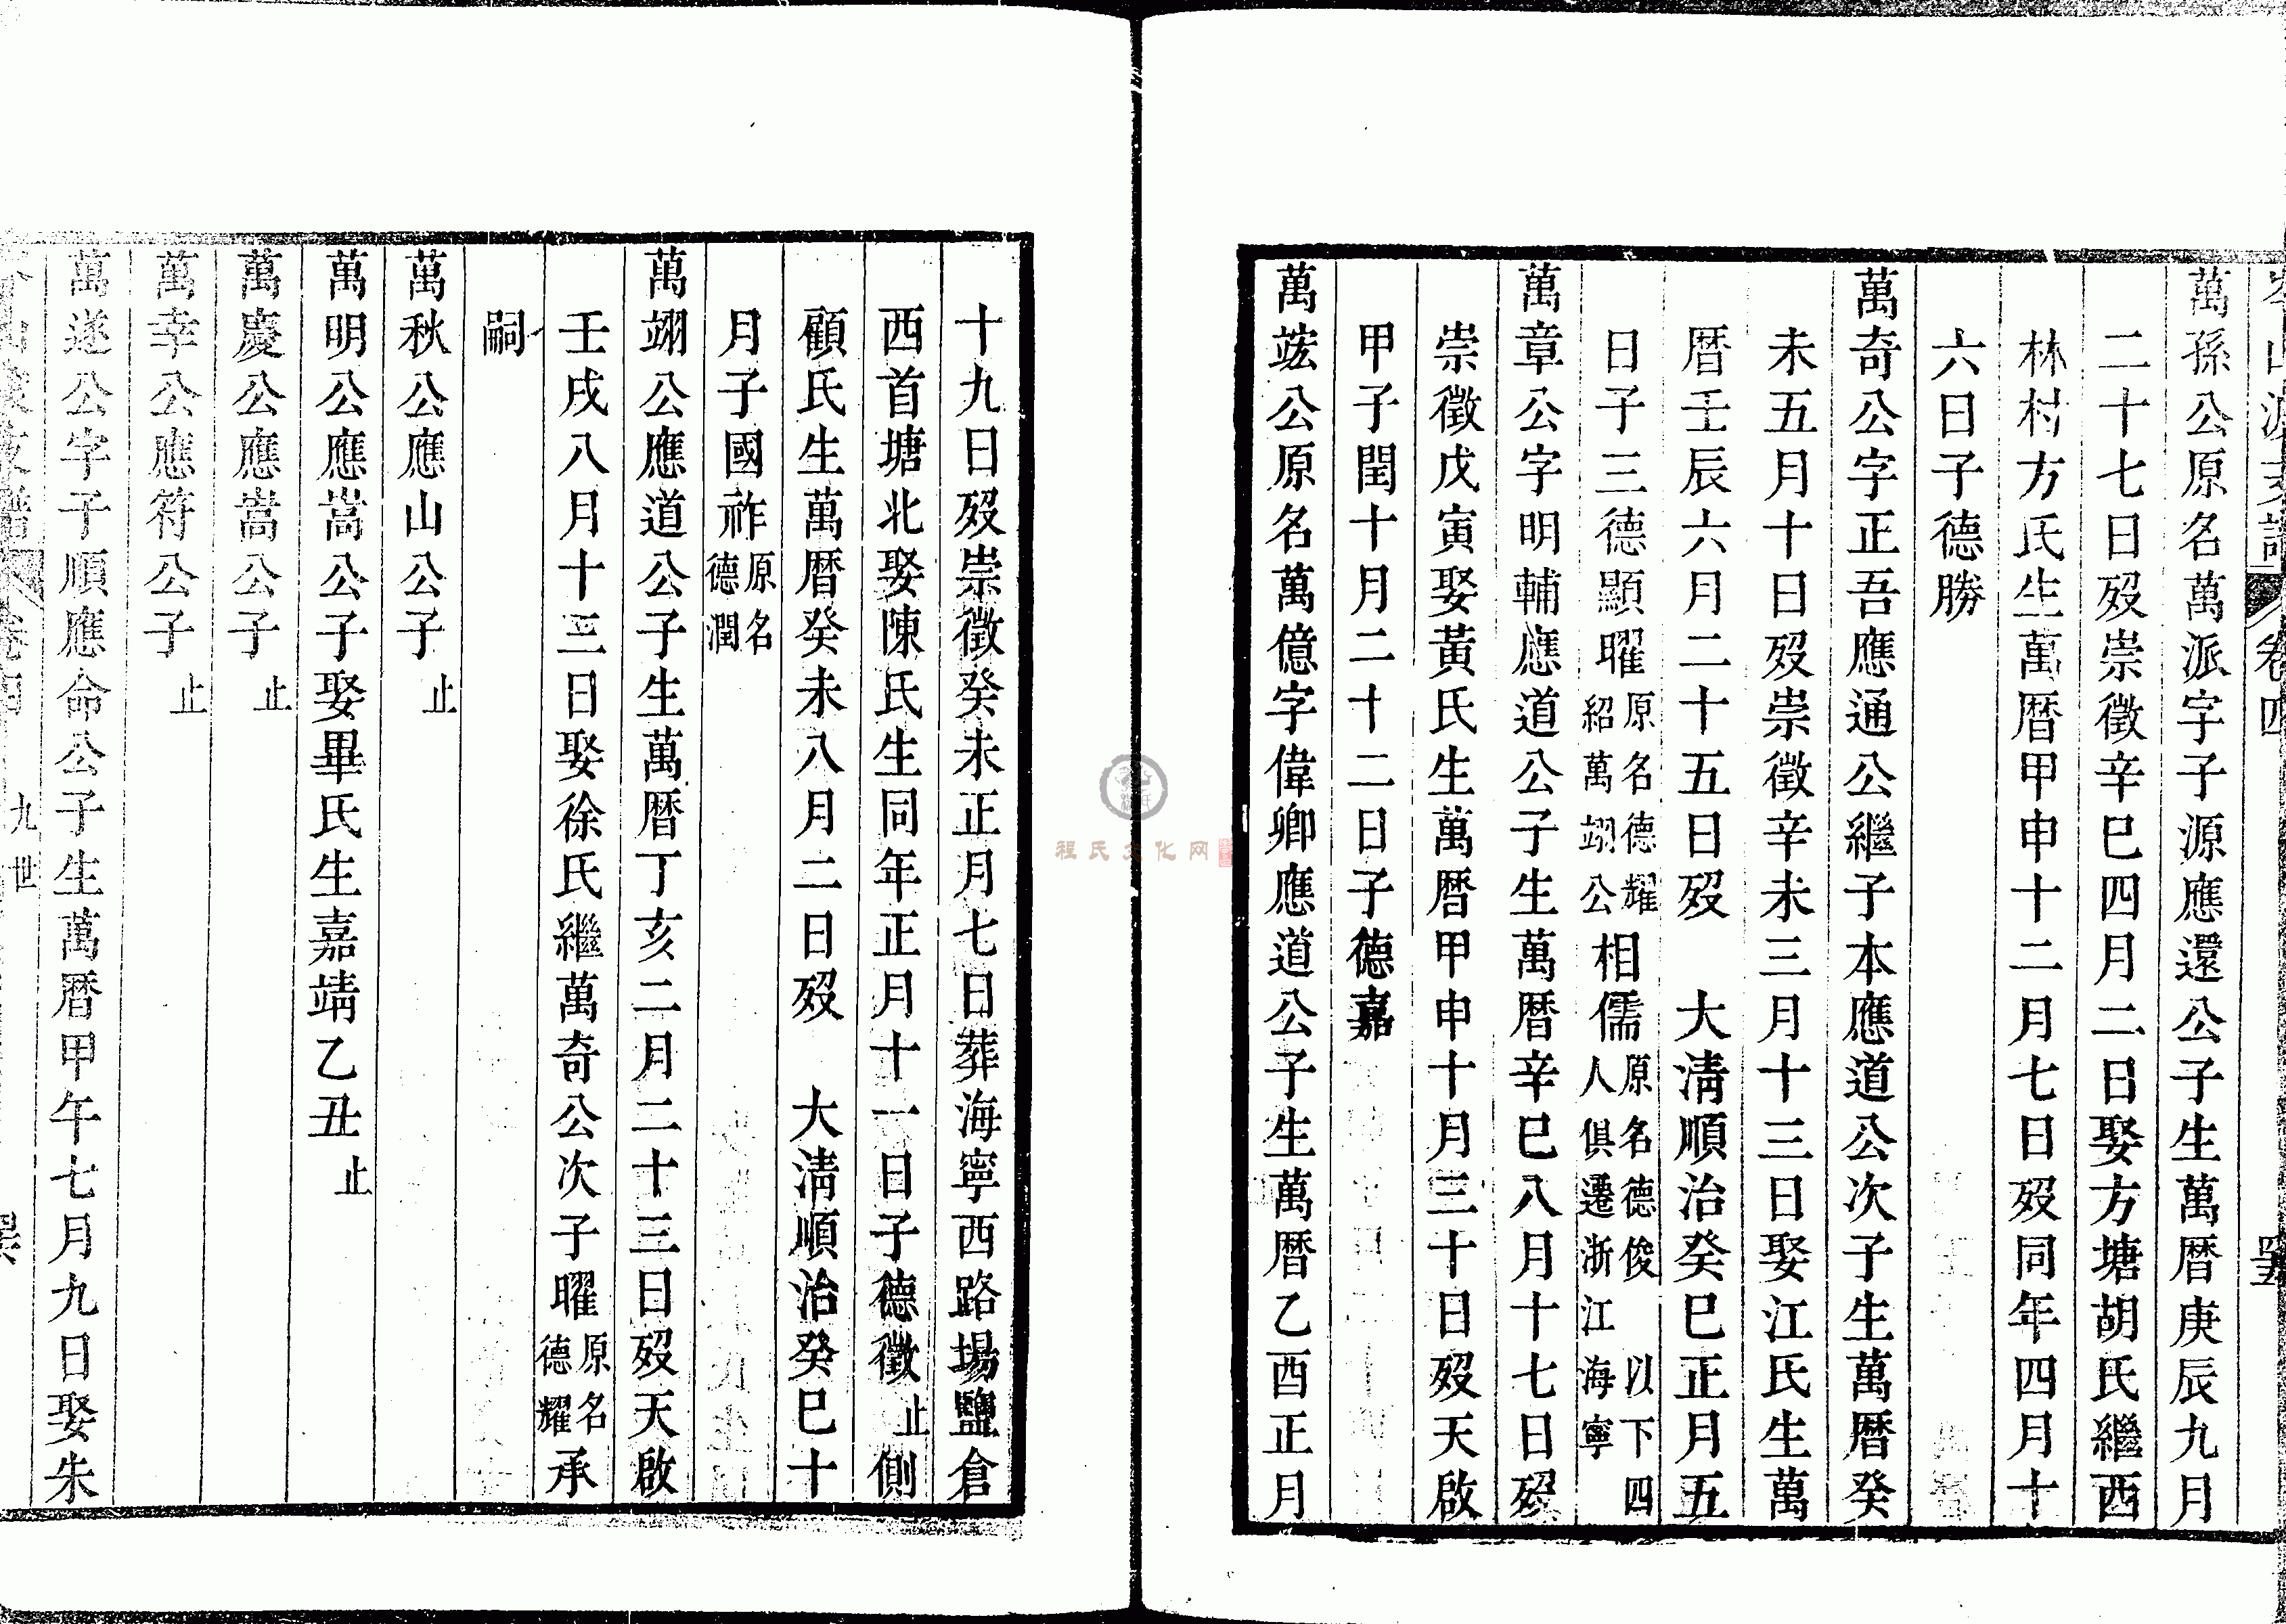 萬孫公原名萬派字子源應還公子生萬曆庚辰九月
二十七日歿崇徵辛巳四月二日娶方塘胡氏繼西
林村方氏生萬曆甲申十二月七日歿同年四月十
六日子德勝
萬奇公字正吾應通公繼子本應道公次子生萬曆癸
未五月十日歿崇徵辛未三月十三日娶江氏生萬
曆壬辰六月二十五日歿　大清順治癸巳正月五
日子三德顯曜原名德耀紹萬翊公相儒原名德俊　以下四人俱遷浙江海寧
萬章公字明輔應道公子生萬曆辛巳八月十七日歿
崇徵戊寅娶黃氏生萬曆甲申十月三十日歿天啟
甲子閏十月二十二日子德嘉
萬竑公原名萬億字偉卿應道公子生萬曆乙酉正月
十九日歿崇徵癸未正月七日葬海寧西路場鹽倉
西首塘北娶陳氏生同年正月十一日子德徵止側
顧氏生萬曆癸未八月二日歿　大清順治癸巳十
月子國祚原名德潤
萬翊公應道公子生萬曆丁亥二月二十三日歿天啟
壬戌八月十三日娶徐氏繼萬奇公次子曜原名德耀承
嗣
萬秋公應山公子止
萬明公應嵩公子娶畢氏生嘉靖乙丑止
萬慶公應嵩公子止
萬幸公應符公子止
萬遂公字子順應命公子生萬曆甲午七月九日娶朱
卷四
九世
程氏文化网